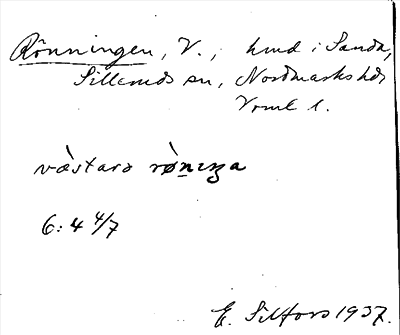 Rönningen, V., hmd i Sanda,
Silleruds sn, Nordmarks hd,
Vrml l.
västarɔ
6:4 4/7
E. Silfors 1937.